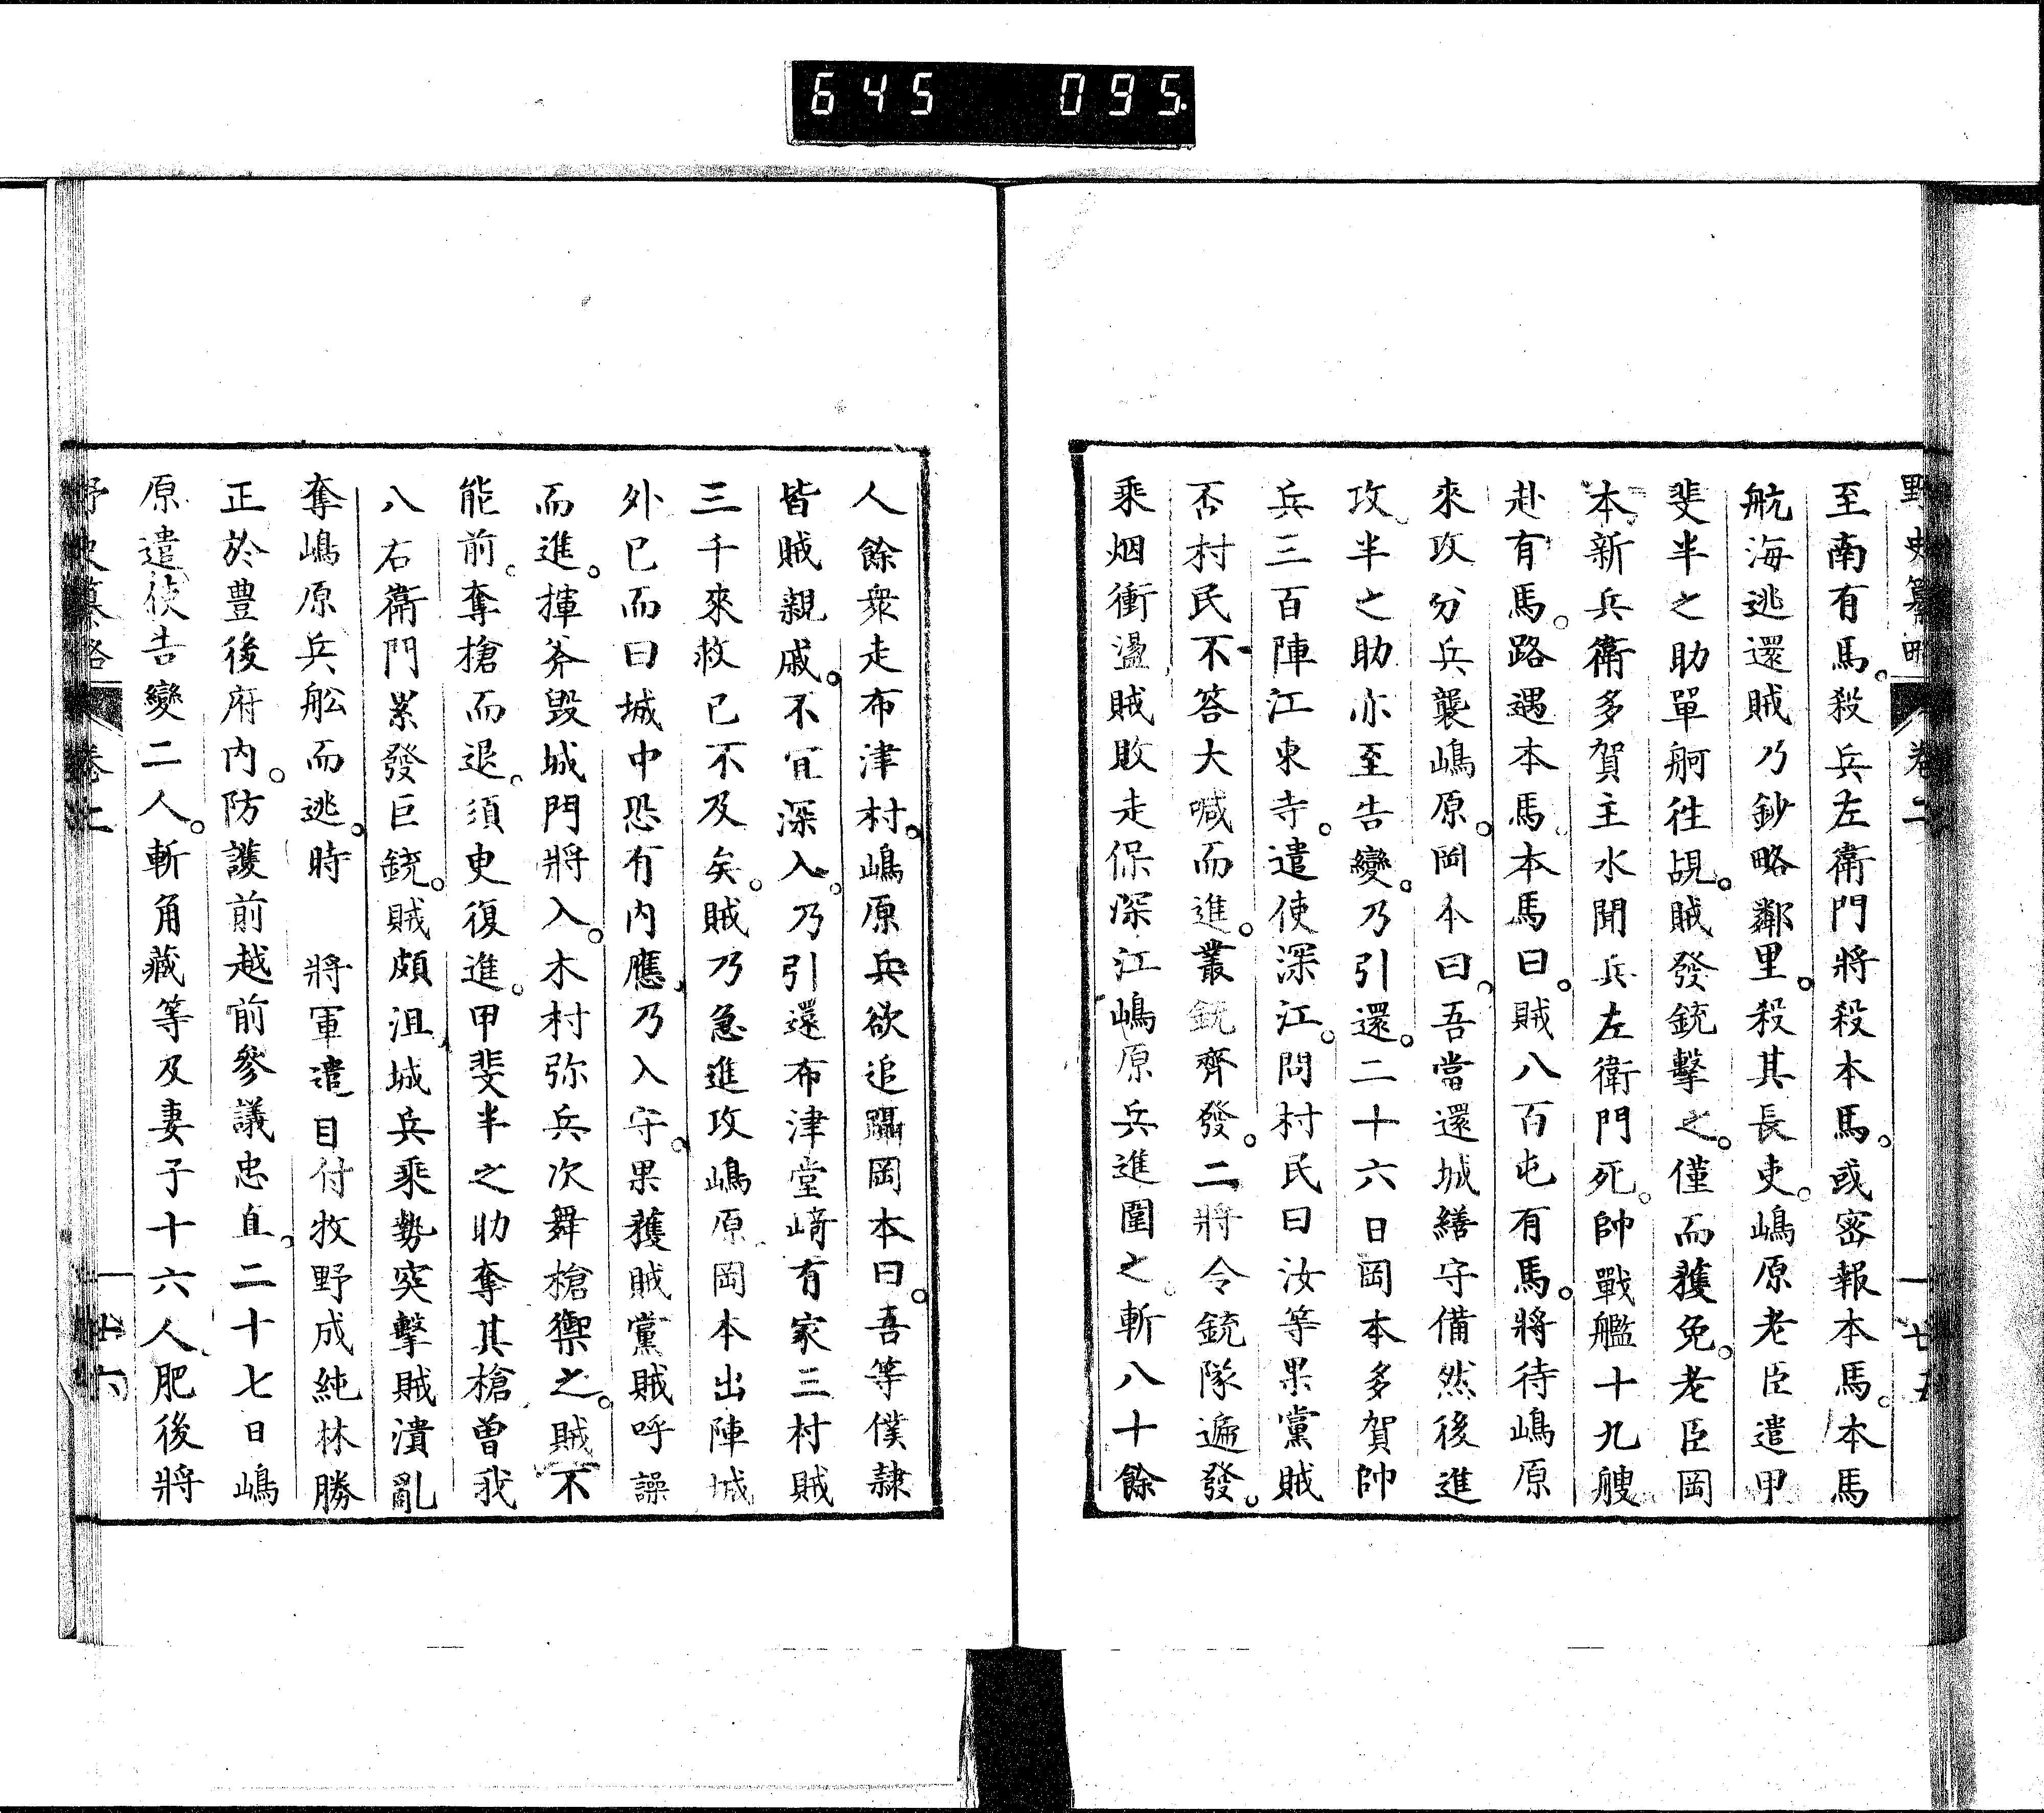 645 095
野史纂略 卷二 廿五
至南有馬。殺兵左衛門將殺本馬。或密報本馬。本馬
航海逃還賊乃鈔略鄰里。殺其長吏。嶋原老臣遣甲
斐半之助單舸徃覘。賊發銃擊之。僅而獲免。老臣岡
本新兵衛多賀主水聞兵左衛門死。帥戰艦十九艘
赴有馬。路遇本馬。本馬曰。賊八百屯有馬。將待嶋原
來攻分兵襲嶋原。岡本曰。吾當還城繕守備然後進
攻。半之助亦至告變。乃引還。二十六日岡本多賀帥
兵三百陣江東寺。遣使深江。問村民曰汝等果黨賊
否村民不答大喊而進。叢銃齊發。二將令銃隊遍發。
乘烟衝盪賊敗走保深江嶋原兵進圍之。斬八十餘
人餘衆走布津村。嶋原兵欲追躡岡本曰。吾等僕隷
皆賊親戚。不宜深入。乃引還布津堂﨑有家三村賊
三千來救已不及矣。賊乃急進攻嶋原。岡本出陣城
外已而曰城中恐有内應。乃入守。果獲賊黨賊呼譟
而進。揮斧毀城門將入。木村弥兵次舞槍禦之。賊不
能前。奪槍而退。須臾復進。甲斐半之助奪其槍曽我
八右衛門累發巨銃。賊頗沮城兵乘勢突擊賊潰亂
奪嶋原兵舩而逃。時 將軍遣目付牧野成純林勝
正於豊後府内。防護前越前參議忠直。二十七日嶋
原遣使告變二人。斬角藏等及妻子十六人肥後將
野史纂略 卷二 廿六